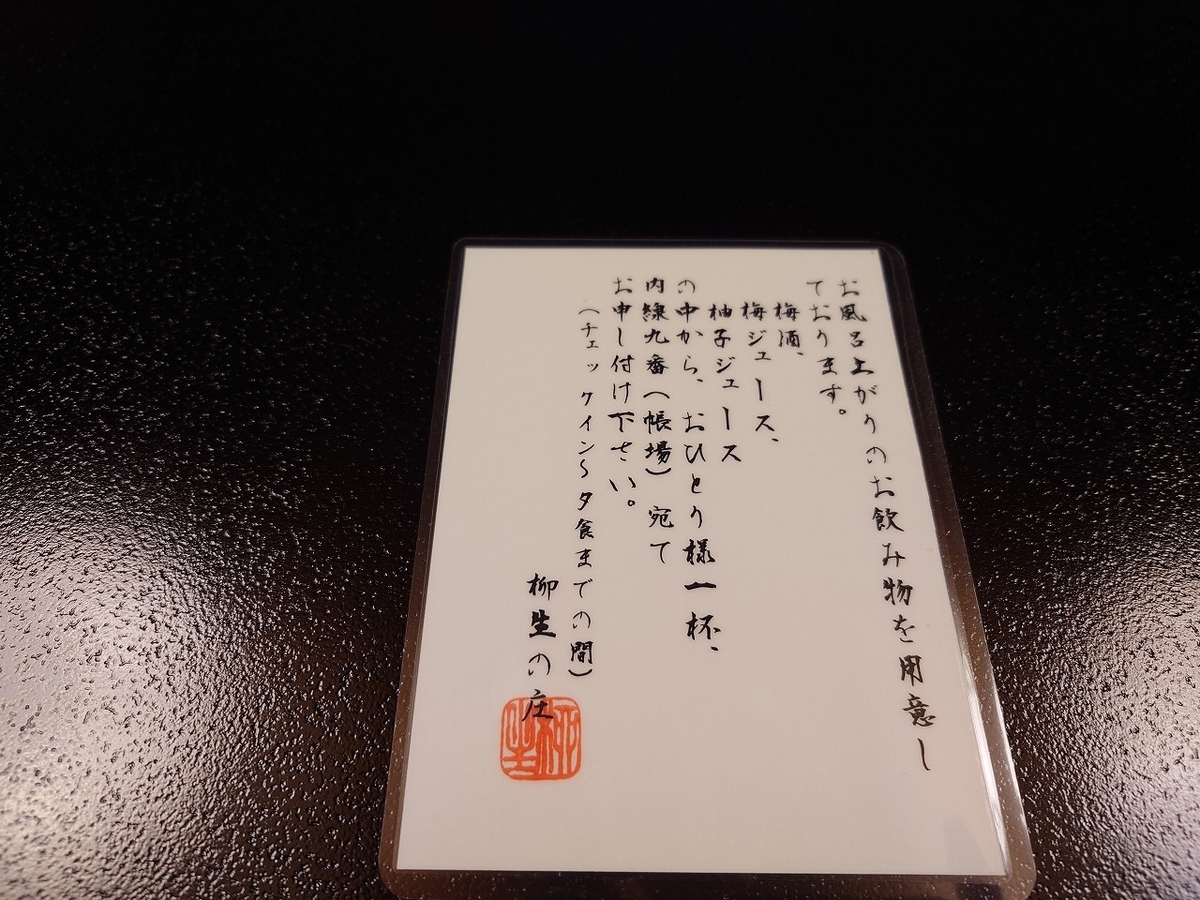 お風呂上がりのお飲み物を用意し
ております。
梅酒、
梅ジュース、
柚子ジュース
の中から、おひとり様一杯、
内線九番（帳場）宛て
お申し付け下さい。
（チェックイン〜夕食までの間）
柳生の庄
柳生